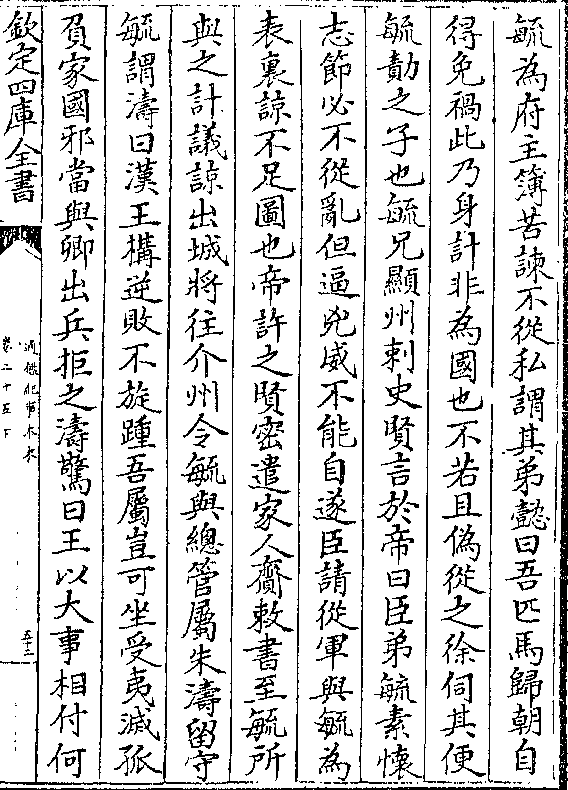 毓為府主簿苦諫不從私謂其弟懿曰吾匹馬歸朝自
得免禍此乃身計非為國也不若且偽從之徐伺其便
毓勣之子也毓兄顯州刺史賢言於帝曰臣弟毓素懷
志節必不從亂但逼兇威不能自遂臣請從軍與毓為
表裏諒不足圖也帝許之賢密遣家人齎敕書至毓所
與之計議諒出城將往介州令毓與總管屬朱濤留守
毓謂濤曰漢王構逆敗不旋踵吾屬豈可坐受夷滅孤
負家國邪當與卿出兵拒之濤驚曰王以大事相付何
欽定四庫全書
通鑑紀事本末
卷二十五下
五十三